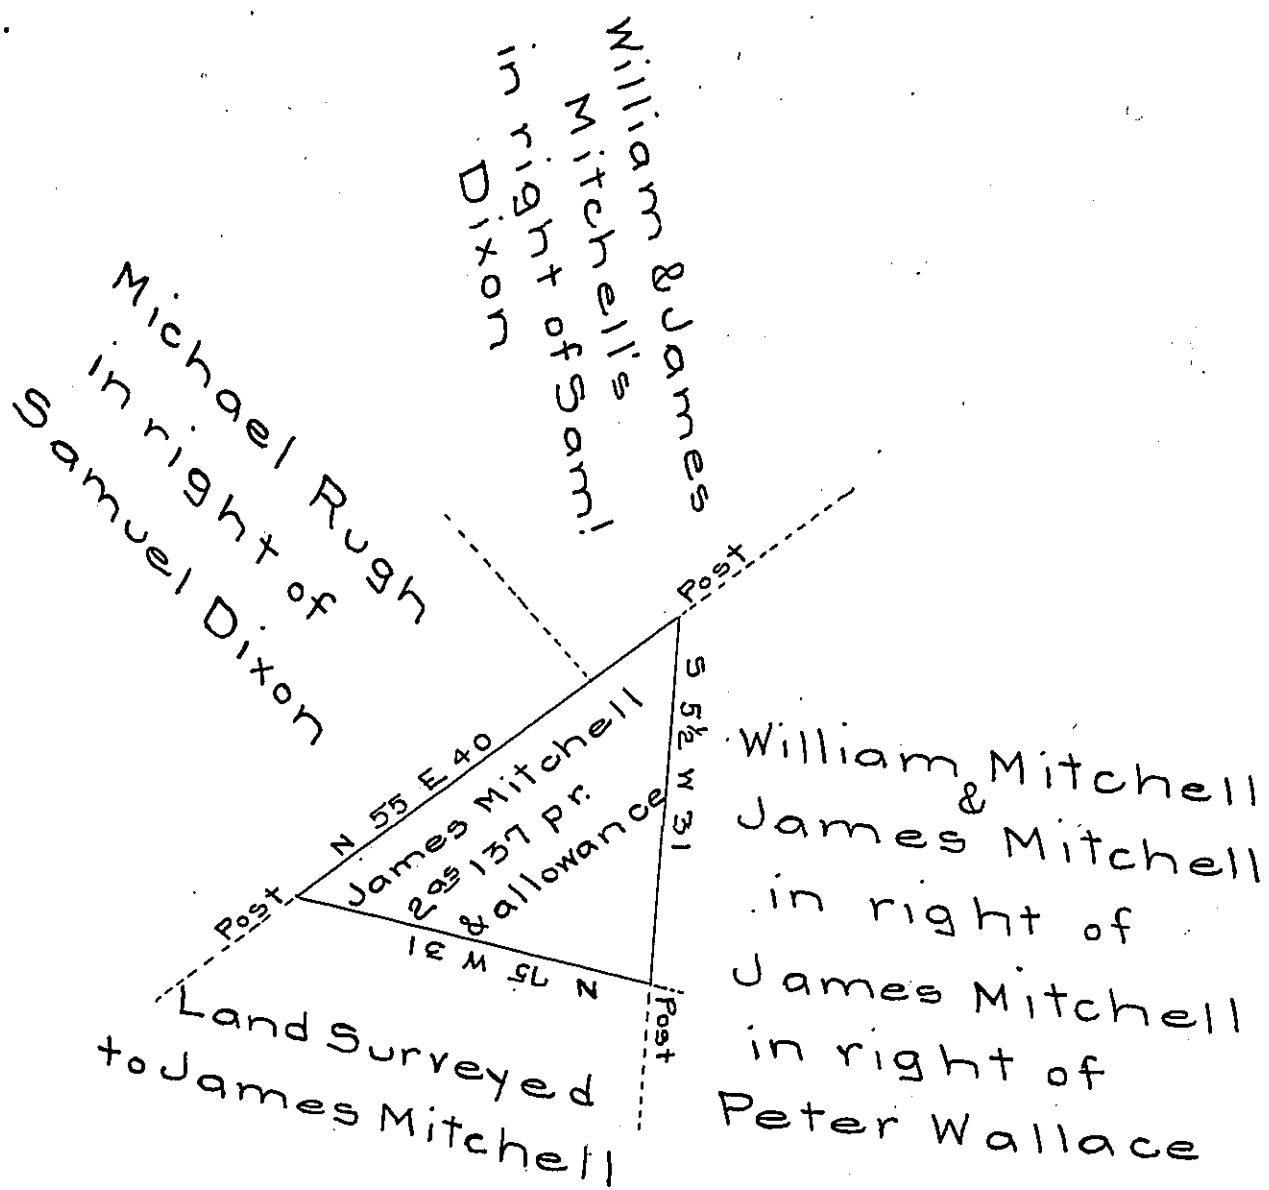 William & James
Mitchell's
in right of Sam!
Dixon
Michael Rugh
in right of
Samuel Dixon
Post
N 55 E 40
S 5½ W 31
James Mitchell
2as 137 pr.
& allowance
Post
N 75 W 31
Post
William Mitchell
&
James Mitchell
in right of
James Mitchell
in right of
Peter Wallace
Land Surveyed
to James Mitchell